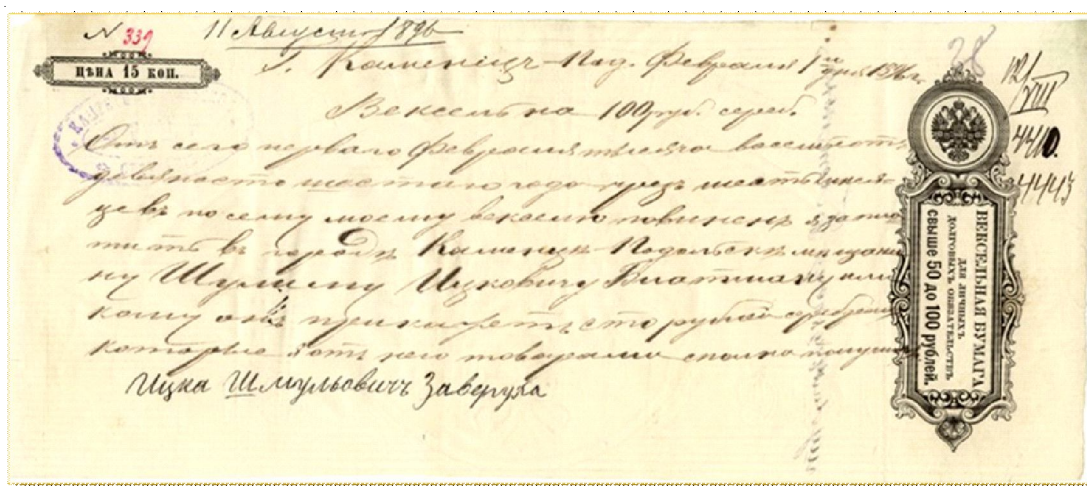 № 339 11 Августа 1896
ЦѢНА 15 КОП.
Г. Каменец-Под. Февраля 1 дня 1896 г.
28
12/VIII
4410.
4443
Вексель на 100 руб. сереб.
Отъ сего перваго Февраля тысяча восемьсотъ
девяносто шестаго года чрезъ шесть мѣся-
цевъ по сему моему векселю повиненъ я запла-
тить въ городѣ Каменецъ-Подольскѣ мѣщани-
ну Шулиму Ицковичу или
кому онъ прикажетъ сто рублей сребромъ
которые я отъ него товарами сполна получилъ
Ицка Шмульовичъ Заверуха
ВЕКСЕЛЬНАЯ БУМАГА
ДЛЯ ЛИЧНЫХЪ
ДОЛГОВЫХЪ ОБЯЗАТЕЛЬСТВЪ
свыше 50 до 100 рублей.